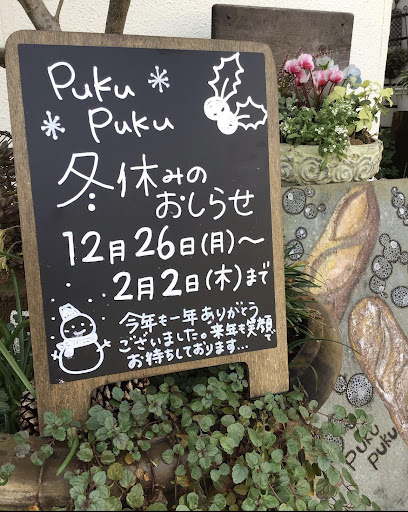 Puku
Puku
冬休みの
おしらせ
12月26日(月)〜
2月2日(木)まで
今年も一年ありがとう
ございました。来年も笑顔で
お待ちしております...
Puku
Puku